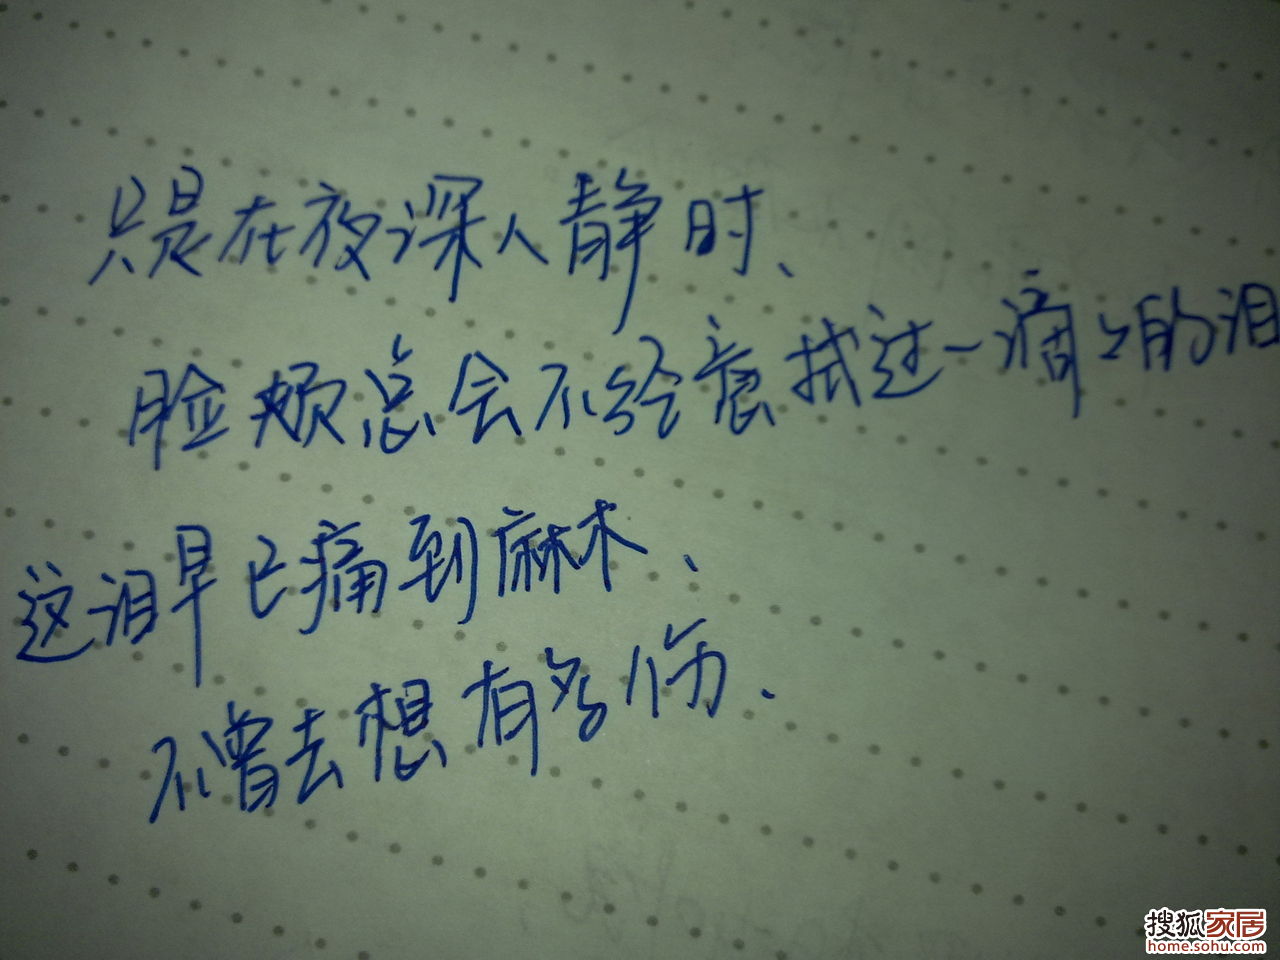 只是在夜深人静时、
脸颊总会不经意拭过一滴々的泪
这泪早已痛到麻木、
不曾去想有多伤、
搜狐家居
home.sohu.com